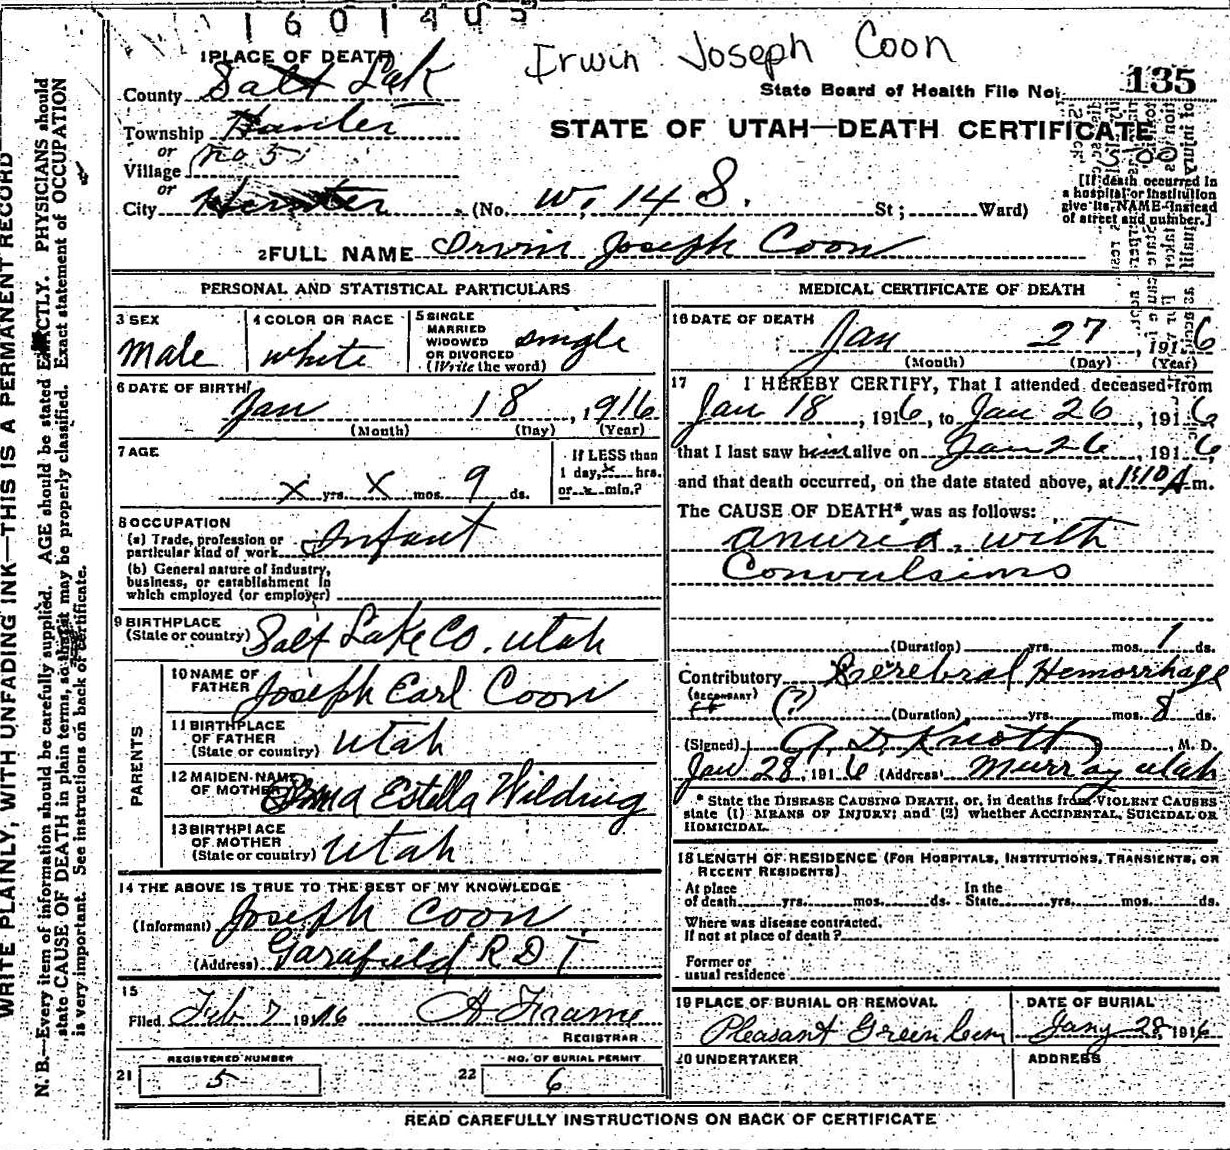 1601405
Irwin Joseph Coon
1 PLACE OF DEATH
County Salt Lake
State Board of Health File No. 135
Township Hunter
STATE OF UTAH—DEATH CERTIFICATE
or
Village (no 5)
or
City Hunter (No. W. 14 S. St; Ward)
[If death occurred in
a hospital or institution
give its NAME instead
of street and number.]
2 FULL NAME Irvin Joseph Coon
PERSONAL AND STATISTICAL PARTICULARS
3 SEX
Male
4 COLOR OR RACE
white
5 SINGLE
MARRIED
WIDOWED
OR DIVORCED
(Write the word)
single
6 DATE OF BIRTH
Jan 18, 1916
(Month) (Day) (Year)
7 AGE
x yrs. x mos. 9 ds.
If LESS than
1 day, x hrs.
or x min.?
8 OCCUPATION
(a) Trade, profession or
particular kind of work Infant
(b) General nature of industry,
business, or establishment in
which employed (or employer)
9 BIRTHPLACE
(State or country) Salt Lake Co. Utah
PARENTS
10 NAME OF
FATHER Joseph Earl Coon
11 BIRTHPLACE
OF FATHER
(State or country) Utah
12 MAIDEN NAME
OF MOTHER Estella Wilding
13 BIRTHPLACE
OF MOTHER
(State or country) Utah
14 THE ABOVE IS TRUE TO THE BEST OF MY KNOWLEDGE
(Informant) Joseph Coon
(Address) Garafield R D 1
15
Filed Feb 7 1916 A Frame
REGISTRAR
21 REGISTERED NUMBER
5
22 NO. OF BURIAL PERMIT
6
MEDICAL CERTIFICATE OF DEATH
16 DATE OF DEATH
Jan 27, 1916
(Month) (Day) (Year)
17 I HEREBY CERTIFY, That I attended deceased from
Jan 18, 1916, to Jan 26, 1916
that I last saw him alive on Jan 26, 1916,
and that death occurred, on the date stated above, at m.
The CAUSE OF DEATH* was as follows:
anuria, with
Convulsions
(Duration) yrs. mos. 1 ds.
Contributory Cerebral Hemorrhage
(SECONDARY)
(?) (Duration) yrs. mos. 8 ds.
(Signed) A. D. Knott, M. D.
Jan 28, 1916 (Address) Murray Utah
* State the DISEASE CAUSING DEATH, or, in deaths from VIOLENT CAUSES
state (1) MEANS OF INJURY; and (2) whether ACCIDENTAL, SUICIDAL OR
HOMICIDAL.
18 LENGTH OF RESIDENCE (FOR HOSPITALS, INSTITUTIONS, TRANSIENTS, OR
RECENT RESIDENTS).
At place
of death yrs. mos. ds.
In the
State yrs. mos. ds.
Where was disease contracted.
If not at place of death?
Former or
usual residence
19 PLACE OF BURIAL OR REMOVAL
Pleasant Green Cem
DATE OF BURIAL
Jany 28, 1916
20 UNDERTAKER
ADDRESS
READ CAREFULLY INSTRUCTIONS ON BACK OF CERTIFICATE
WRITE PLAINLY, WITH UNFADING INK—THIS IS A PERMANENT RECORD
N. B.—Every item of information should be carefully supplied. AGE should be stated EXACTLY. PHYSICIANS should
state CAUSE OF DEATH in plain terms, so that it may be properly classified. Exact statement of OCCUPATION
is very important. See instructions on back of certificate.